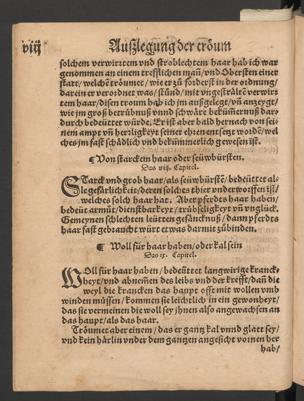 viij Außlegung der tröum
solchem verwirrtem vnd stroblechtem haar hab ich war
genommen an einem trefflichen mañ/ vnd Obersten einer
statt/ welchē tröumet/ wie er zů forderst in der ordnung/
darein er verordnet was/ stůnd/ mit vngestrāltē verwirr
tem haar/ disen troum hab ich jm außgelegt/ vñ anzeygt/
wie jm groß betrübnuß vnnd schwäre bekümernuß dar⸗
durch bedeüttet würde. Er ist aber bald hernach von sei⸗
nem ampt vñ herligkeyt seiner ehren entsetzt wordē/ wel
ches jm fast schädlich vnd bekümmerlich gewesen ist.
¶ Von starckem haar oder seüwbürsten.
Das viij. Capitel.
STarck vnd grob haar/ als seüwbürstē/ bedeüttet al⸗
le gefärlichkeit/ deren solches thier vnderworffen ist/
welches solch haar hat. Aber pferdts haar haben/
bedeüt armůt/ dienstbarkeyt/ trübseligkeyt vñ vnglück.
Gemeynen schlechten leütten gefäncknuß/ dann pferdts
haar fast gebraucht würt etwas darmit zů binden.
¶ Woll für haar haben/ oder kal sein
Das ix. Capitel.
WOll für haar haben/ bedeüttet langwirige kranck⸗
heyt/ vnd abnemen des leibs vnd der krefft/ dañ die
weyl die krancken das haupt offt mit wollen vmb
winden müssen/ kommen sie leichtlich in ein gewonheyt/
das sie vermeinen die woll sey jhnen also angewachsen an
das haupt/ als das haar.
Tröumet aber einem/ das er gantz kal vnnd glatt sey/
vnd kein härlin vnder dem gantzen angesicht vornen her
hab/